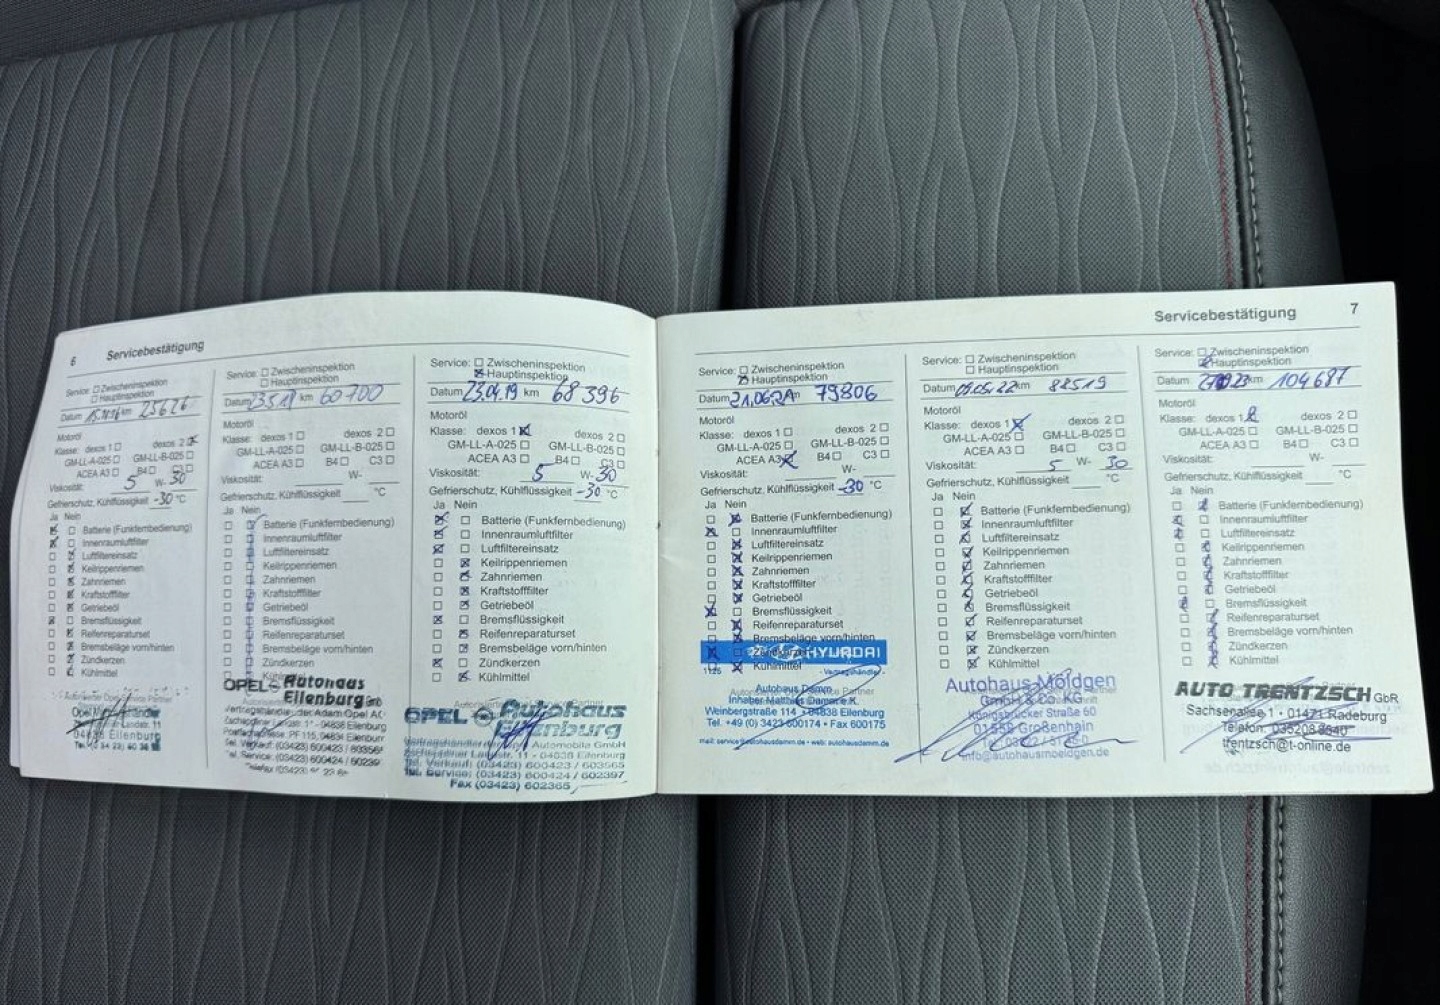 6 Servicebestätigung
Service: ☐ Zwischeninspektion
☐ Hauptinspektion
Datum km 25626
Motoröl
Klasse: dexos 1 ☐ dexos 2 ☒
GM-LL-A-025 ☐ GM-LL-B-025 ☐
ACEA A3 ☐ B4 ☐ C3 ☐
Viskosität: 5 W- 30
Gefrierschutz, Kühlflüssigkeit -30 °C
Ja Nein
Batterie (Funkfernbedienung)
Innenraumluftfilter
Luftfiltereinsatz
Keilrippenriemen
Zahnriemen
Kraftstofffilter
Getriebeöl
Bremsflüssigkeit
Reifenreparaturset
Bremsbeläge vorn/hinten
Zündkerzen
Kühlmittel
Eilenburg
Service: ☐ Zwischeninspektion
☐ Hauptinspektion
Datum km 60700
Motoröl
Klasse: dexos 1 ☐ dexos 2 ☐
GM-LL-A-025 ☐ GM-LL-B-025 ☐
ACEA A3 ☐ B4 ☐ C3 ☐
Viskosität: W-
Gefrierschutz, Kühlflüssigkeit °C
Ja Nein
Batterie (Funkfernbedienung)
Innenraumluftfilter
Luftfiltereinsatz
Keilrippenriemen
Zahnriemen
Kraftstofffilter
Getriebeöl
Bremsflüssigkeit
Reifenreparaturset
Bremsbeläge vorn/hinten
Zündkerzen
OPEL Autohaus
Eilenburg
Vertragshändler der Adam Opel AG
04838 Eilenburg
Postfach PF 115, 04838 Eilenburg
Tel. Verkauf: (03423) 600423 /
Tel. Service: (03423) 600424 /
Service: ☐ Zwischeninspektion
☒ Hauptinspektion
Datum 23.04.19 km 68396
Motoröl
Klasse: dexos 1 ☒ dexos 2 ☐
GM-LL-A-025 ☐ GM-LL-B-025 ☐
ACEA A3 ☐ B4 ☐ C3 ☐
Viskosität: 5 W- 30
Gefrierschutz, Kühlflüssigkeit -30 °C
Ja Nein
Batterie (Funkfernbedienung)
Innenraumluftfilter
Luftfiltereinsatz
Keilrippenriemen
Zahnriemen
Kraftstofffilter
Getriebeöl
Bremsflüssigkeit
Reifenreparaturset
Bremsbeläge vorn/hinten
Zündkerzen
Kühlmittel
OPEL Autohaus
Eilenburg
Automobile GmbH
11 - 04838 Eilenburg
Tel. Verkauf (03423) 600423 / 603565
Tel. Service: (03423) 600424 / 602397
Fax (03423) 602365
Servicebestätigung 7
Service: ☐ Zwischeninspektion
☒ Hauptinspektion
Datum 21.06.21 km 79806
Motoröl
Klasse: dexos 1 ☐ dexos 2 ☐
GM-LL-A-025 ☐ GM-LL-B-025 ☐
ACEA A3 ☒ B4 ☐ C3 ☐
Viskosität: W-
Gefrierschutz, Kühlflüssigkeit -30 °C
Ja Nein
Batterie (Funkfernbedienung)
Innenraumluftfilter
Luftfiltereinsatz
Keilrippenriemen
Zahnriemen
Kraftstofffilter
Getriebeöl
Bremsflüssigkeit
Reifenreparaturset
Bremsbeläge vorn/hinten
HYUNDAI
Kühlmittel
- Vertragshändler -
Autohaus Damm
Inhaber Matthias Damm e.K.
Weinbergstraße 114 · 04838 Eilenburg
Tel. +49 (0) 3423 600174 · Fax 600175
mail: service@autohausdamm.de · web: autohausdamm.de
Service: ☐ Zwischeninspektion
☐ Hauptinspektion
Datum 09.05.22 km 88519
Motoröl
Klasse: dexos 1 ☒ dexos 2 ☐
GM-LL-A-025 ☐ GM-LL-B-025 ☐
ACEA A3 ☐ B4 ☐ C3 ☐
Viskosität: 5 W- 30
Gefrierschutz, Kühlflüssigkeit °C
Ja Nein
Batterie (Funkfernbedienung)
Innenraumluftfilter
Luftfiltereinsatz
Keilrippenriemen
Zahnriemen
Kraftstofffilter
Getriebeöl
Bremsflüssigkeit
Reifenreparaturset
Bremsbeläge vorn/hinten
Zündkerzen
Kühlmittel
Autohaus Möldgen
GmbH & Co. KG
Königsbrücker Straße 60
01558 Großenhain
info@autohausmoeldgen.de
Service: ☐ Zwischeninspektion
☒ Hauptinspektion
Datum km 104687
Motoröl
Klasse: dexos 1 ☒ dexos 2 ☐
GM-LL-A-025 ☐ GM-LL-B-025 ☐
ACEA A3 ☐ B4 ☐ C3 ☐
Viskosität: W-
Gefrierschutz, Kühlflüssigkeit °C
Ja Nein
Batterie (Funkfernbedienung)
Innenraumluftfilter
Luftfiltereinsatz
Keilrippenriemen
Zahnriemen
Kraftstofffilter
Getriebeöl
Bremsflüssigkeit
Reifenreparaturset
Bremsbeläge vorn/hinten
Zündkerzen
Kühlmittel
AUTO TRENTZSCH GbR
Sachsenallee 1 · 01471 Radeburg
Telefon:
trentzsch@t-online.de